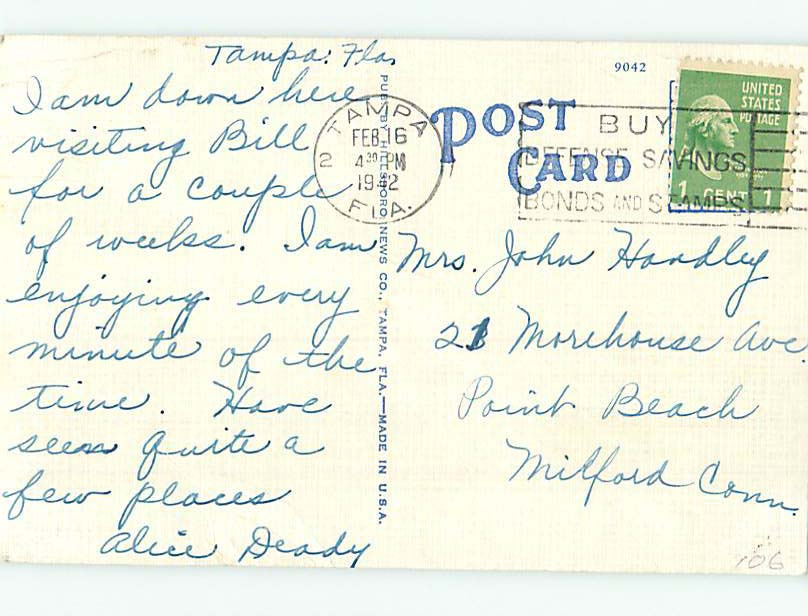 Tampa. Fla.
I am down here
visiting Bill
for a couple
of weeks. I am
enjoying every
minute of the
time. Have
seen quite a
few places
Alice Deady
PUB. BY HILLSBORO NEWS CO., TAMPA, FLA.—MADE IN U.S.A.
9042
POST
CARD
TAMPA
FEB 16
2
4 30 PM
1942
FLA.
BUY
DEFENSE SAVINGS
BONDS AND STAMPS
UNITED
STATES
POSTAGE
1 CENT 1
Mrs. John Handley
21 Morehouse Ave.
Point Beach
Milford Conn.
106